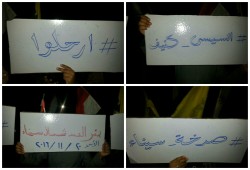 # ارحلوا
# السيسي_كيف
#
٢٠١٦/١١/٢٠
# صرخة_سيناء